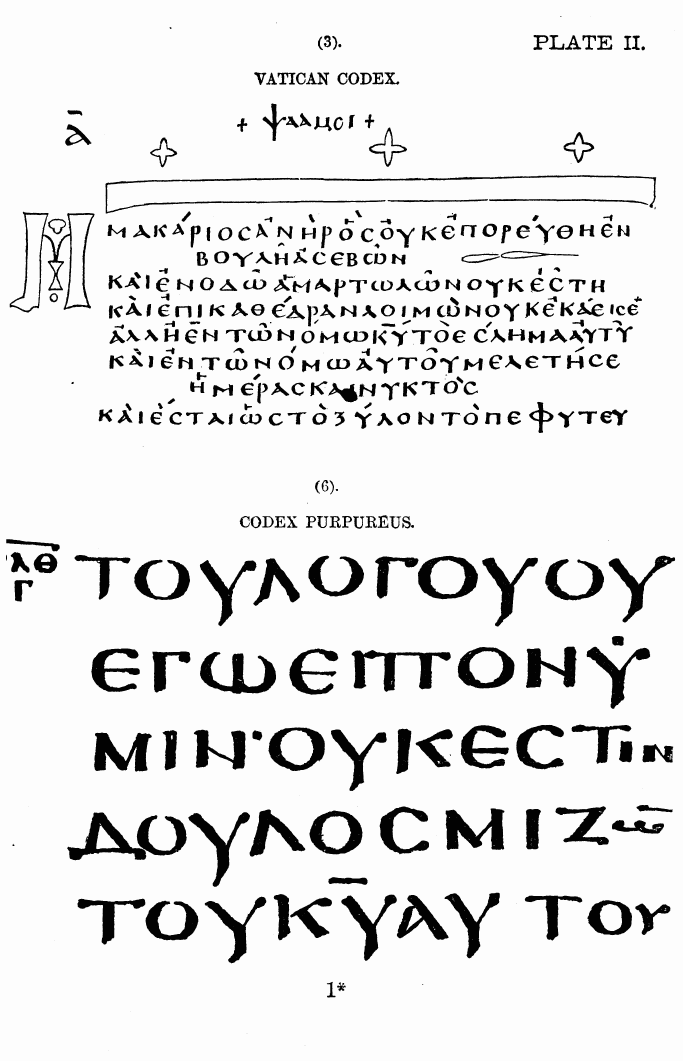 (3).
PLATE II.
VATICAN CODEX.
ᾱ
+ ψαλμοι +
ΜΑΚΆΡΙΟϹἈΝῊΡὍϹΟΥ̓ΚἘΠΟΡΕΎΘΗἘΝ
ΒΟΥΛΗ͂ἈϹΕΒΩ͂Ν
ΚᾺΙἘΝΟΔΩ͂ἉΜΑΡΤΩΛΩ͂ΝΟΥΚἜϹΤΗ
ΚᾺΙἘΠΙΚΑΘΈΔΡΑΝΛΟΙΜΩ͂ΝΟΥΚἘΚΆΘΙϹΕ
ἈΛΛΗἘΝΤΩ͂ΝΌΜΩΚ̅Υ̅ΤΌΘΕΛΗΜΑΑΥ̓ΤΥ͂
ΚᾺΙἘΝΤΩ͂ΝΌΜΩΑΥ̓ΤΟΥ͂ΜΕΛΕΤΉϹΕ
ἩΜΈΡΑϹΚΑΙΝΥΚΤΌϹ
ΚᾺΙἜϹΤΑΙὩϹΤῸΞΎΛΟΝΤῸΠΕΦΥΤΕΥ
(6).
CODEX PURPUREUS.
ΛΘ ΤΟΥΛΟΓΟΥΟΥ
Γ
ΕΓΩΕΙΠΟΝΫ
ΜΙΝ·ΟΥΚΕϹΤΙΝ
ΔΟΥΛΟϹΜΙΖΩ̅
ΤΟΥΚ̅Υ̅ΑΥΤΟΥ
1*